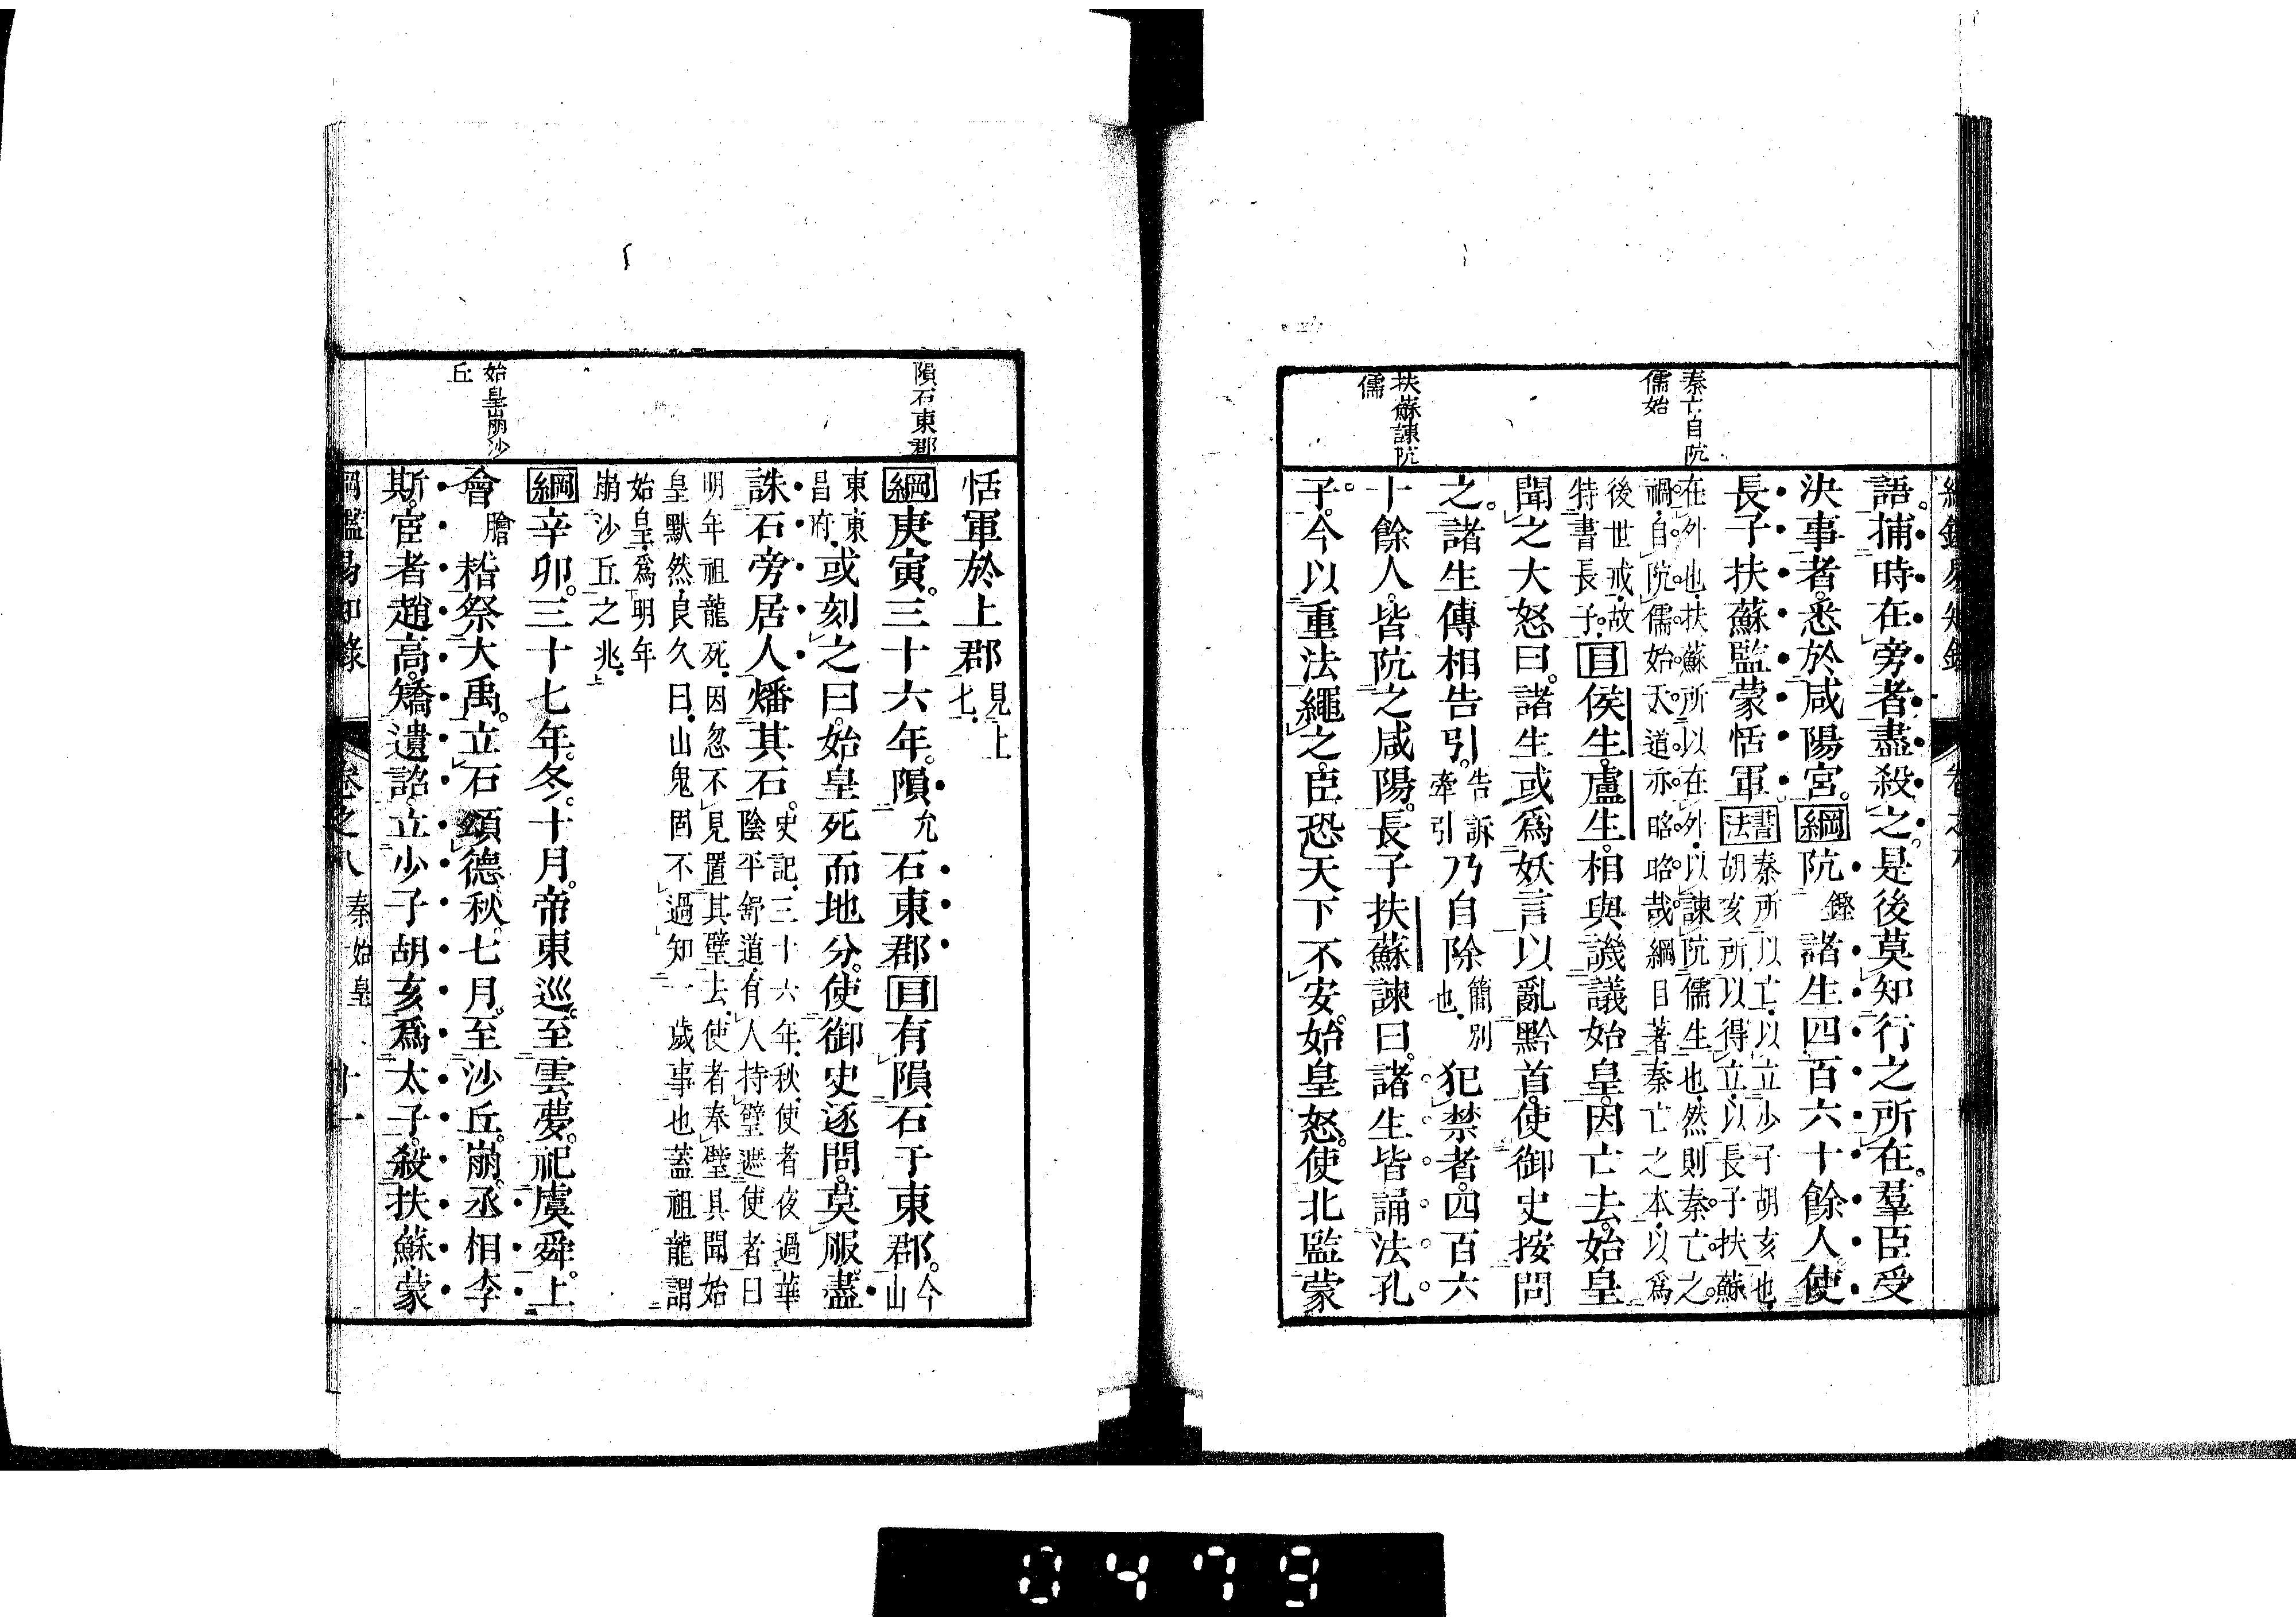 秦亡自阬
儒始
扶蘇諫阬
儒
語。捕時在旁者盡殺之。是後莫知行之所在。羣臣受
決事者。悉於咸陽宮。綱阬鏗諸生四百六十餘人。使
長子扶蘇監蒙恬軍書法秦所以亡。以立少子胡亥也。胡亥所以得立。以長子扶蘇
在外也。扶蘇所以在外。以諫阬儒生也。然則秦亡之
禍。自阬儒始。天道亦昭昭哉。綱目著秦亡之本。以爲
後世戒。故特書長子。目侯生。盧生。相與譏議始皇。因亡去。始皇
聞之大怒曰。諸生或爲妖言以亂黔首。使御史按問
之。諸生傳相告引。告訴牽引乃自除簡別也。犯禁者。四百六
十餘人。皆阬之咸陽。長子扶蘇諫曰。諸生皆誦法孔
子。今以重法繩之。臣恐天下不安。始皇怒。使北監蒙
隕石東郡
始皇崩沙
丘
恬軍於上郡見上七。
綱庚寅。三十六年。隕允石東郡目有隕石于東郡。今山
東東昌府。或刻之曰。始皇死而地分。使御史逐問。莫服。盡
誅石旁居人。燔其石。史記。三十六年。秋。使者夜過華陰平舒道。有人持璧遮使者曰
明年祖龍死。因忽不見。置其璧去。使者奉璧具聞。始
皇默然良久曰。山鬼固不過知一歲事也。蓋祖龍謂
始皇。爲明年
崩沙丘之兆。
綱辛卯。三十七年。冬。十月。帝東巡。至雲夢。祀虞舜。上
會膾稽祭大禹。立石頌德。秋。七月。至沙丘。崩。丞相李
斯。宦者趙高。矯遺詔。立少子胡亥爲太子。殺扶蘇。蒙
綱鑑易知錄 卷之八 秦始皇 十一